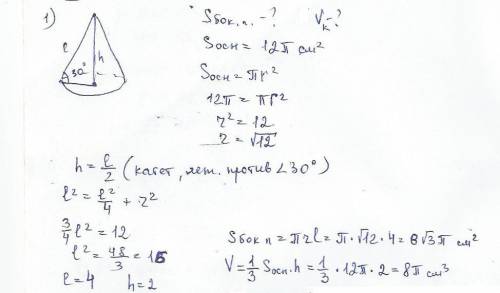 1)
Sбок.п. - ? Vк - ?
Sосн = 12π см²
Sосн = πr²
12π = πr²
r² = 12
r = √12
l
30°
h
h = l/2 (катет, леж. против ∠30°)
l² = l²/4 + r²
3/4 l² = 12
l² = 48/3 = 16
l = 4 h = 2
Sбок п = πrl = π·√12·4 = 8√3π см²
V = 1/3 Sосн·h = 1/3 · 12π · 2 = 8π см³